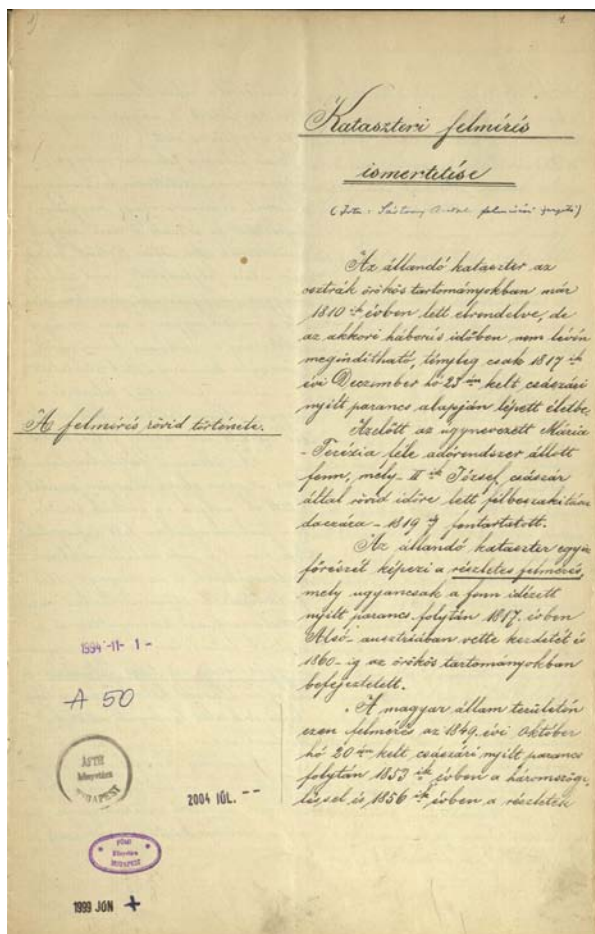 1
Kataszteri felmérés
ismertetése
(Irta: Antal felmérési)
Az állandó kataszter az
osztrák örökös tartományokban már
1810 ik évben lett elrendelve, de
az akkori háborús időben nem lévén
megindítható, tényleg csak 1817 ik
évi Deczember hó 23 án kelt császári
nyilt parancs alapján lépett életbe.
Azelőtt az úgynevezett Mária
- Terézia féle adórendszer állott
fenn, mely - II ik József császár
által rövid időre lett félbeszakítása
daczára - 1819 ig fentartatott.
Az állandó kataszter egyik
főrészét képezi a részletes felmérés,
mely ugyancsak a fenn idézett
nyilt parancs folytán 1817. évben
Alsó-ausztriában vette kezdetét és
1860-ig az örökös tartományokban
befejeztetett.
A magyar állam területén
ezen felmérés az 1849. évi október
hó 20 án kelt császári nyilt parancs
folytán 1853 ik évben a háromszöge-
léssel és 1856 ik évben a részletes
A felmérés rövid története.
1994 -11- 1 -
A 50
könyvtára
BUDAPEST
2004 JÚL. --
FÖMI
Könyvtára
BUDAPEST
1999 JÚN